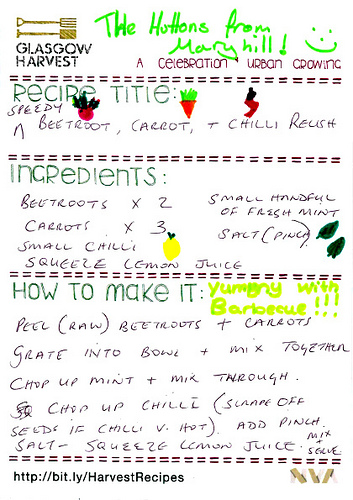 The Huttons from
Maryhill!
GLASGOW
HARVEST
A CELEBRATION URBAN GROWING
RECIPE TITLE:
SPEEDY
BEETROOT, CARROT, + CHILLI RELISH
INGREDIENTS:
BEETROOTS X 2
CARROTS X 3
SMALL CHILLI
SQUEEZE LEMON JUICE
SMALL HANDFUL
OF FRESH MINT
SALT (PINCH)
HOW TO MAKE IT:
yummy with
Barbecue!!!
PEEL (RAW) BEETROOTS + CARROTS
GRATE INTO BOWL + MIX TOGETHER
CHOP UP MINT + MIX THROUGH.
CHOP UP CHILLI (SCRAPE OFF
SEEDS IF CHILLI V. HOT). ADD PINCH
SALT - SQUEEZE LEMON JUICE. MIX + SERVE
http://bit.ly/HarvestRecipes